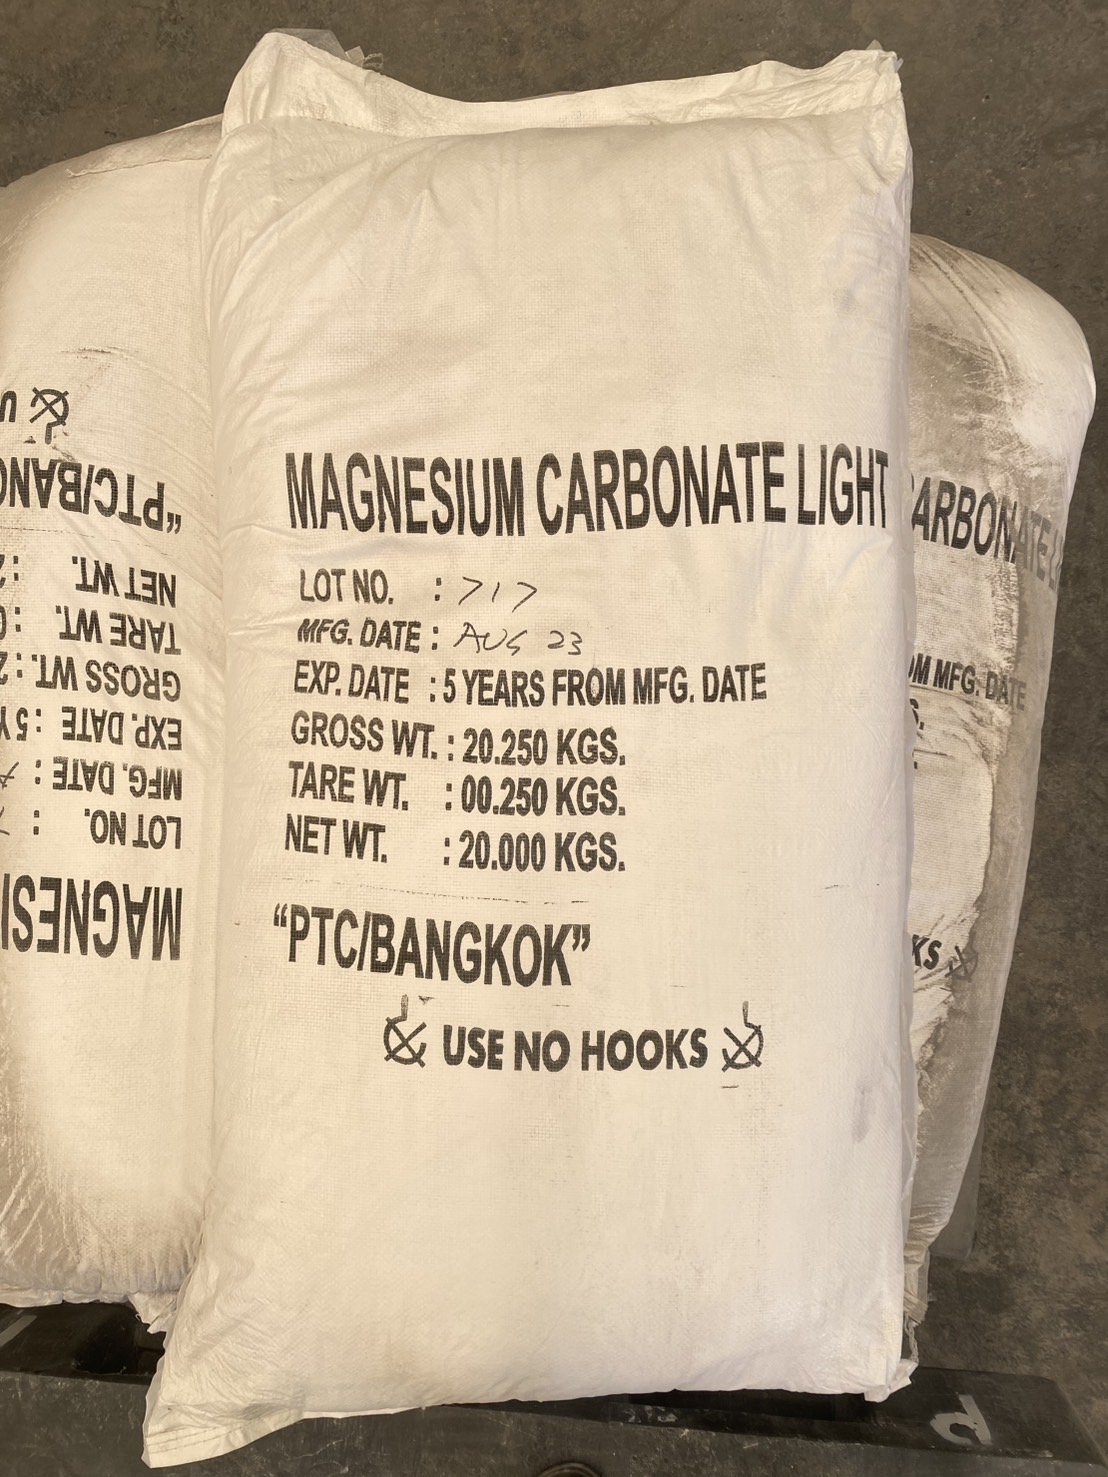 MAGNESIUM CARBONATE LIGHT
LOT NO. : 717
MFG. DATE : AUG 23
EXP. DATE : 5 YEARS FROM MFG. DATE
GROSS WT. : 20.250 KGS.
TARE WT. : 00.250 KGS.
NET WT. : 20.000 KGS.
"PTC/BANGKOK"
USE NO HOOKS
MAGNESI
LOT NO. :
MFG. DATE :
EXP. DATE : 5 Y
GROSS WT. : 2
TARE WT. : 0
NET WT. : 2
"PTC/BANG
U
CARBONATE L
OM MFG. DATE
S.
KS